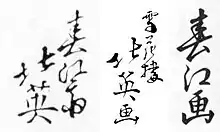 春江画
雪花樓
北英画
春江斎
北英